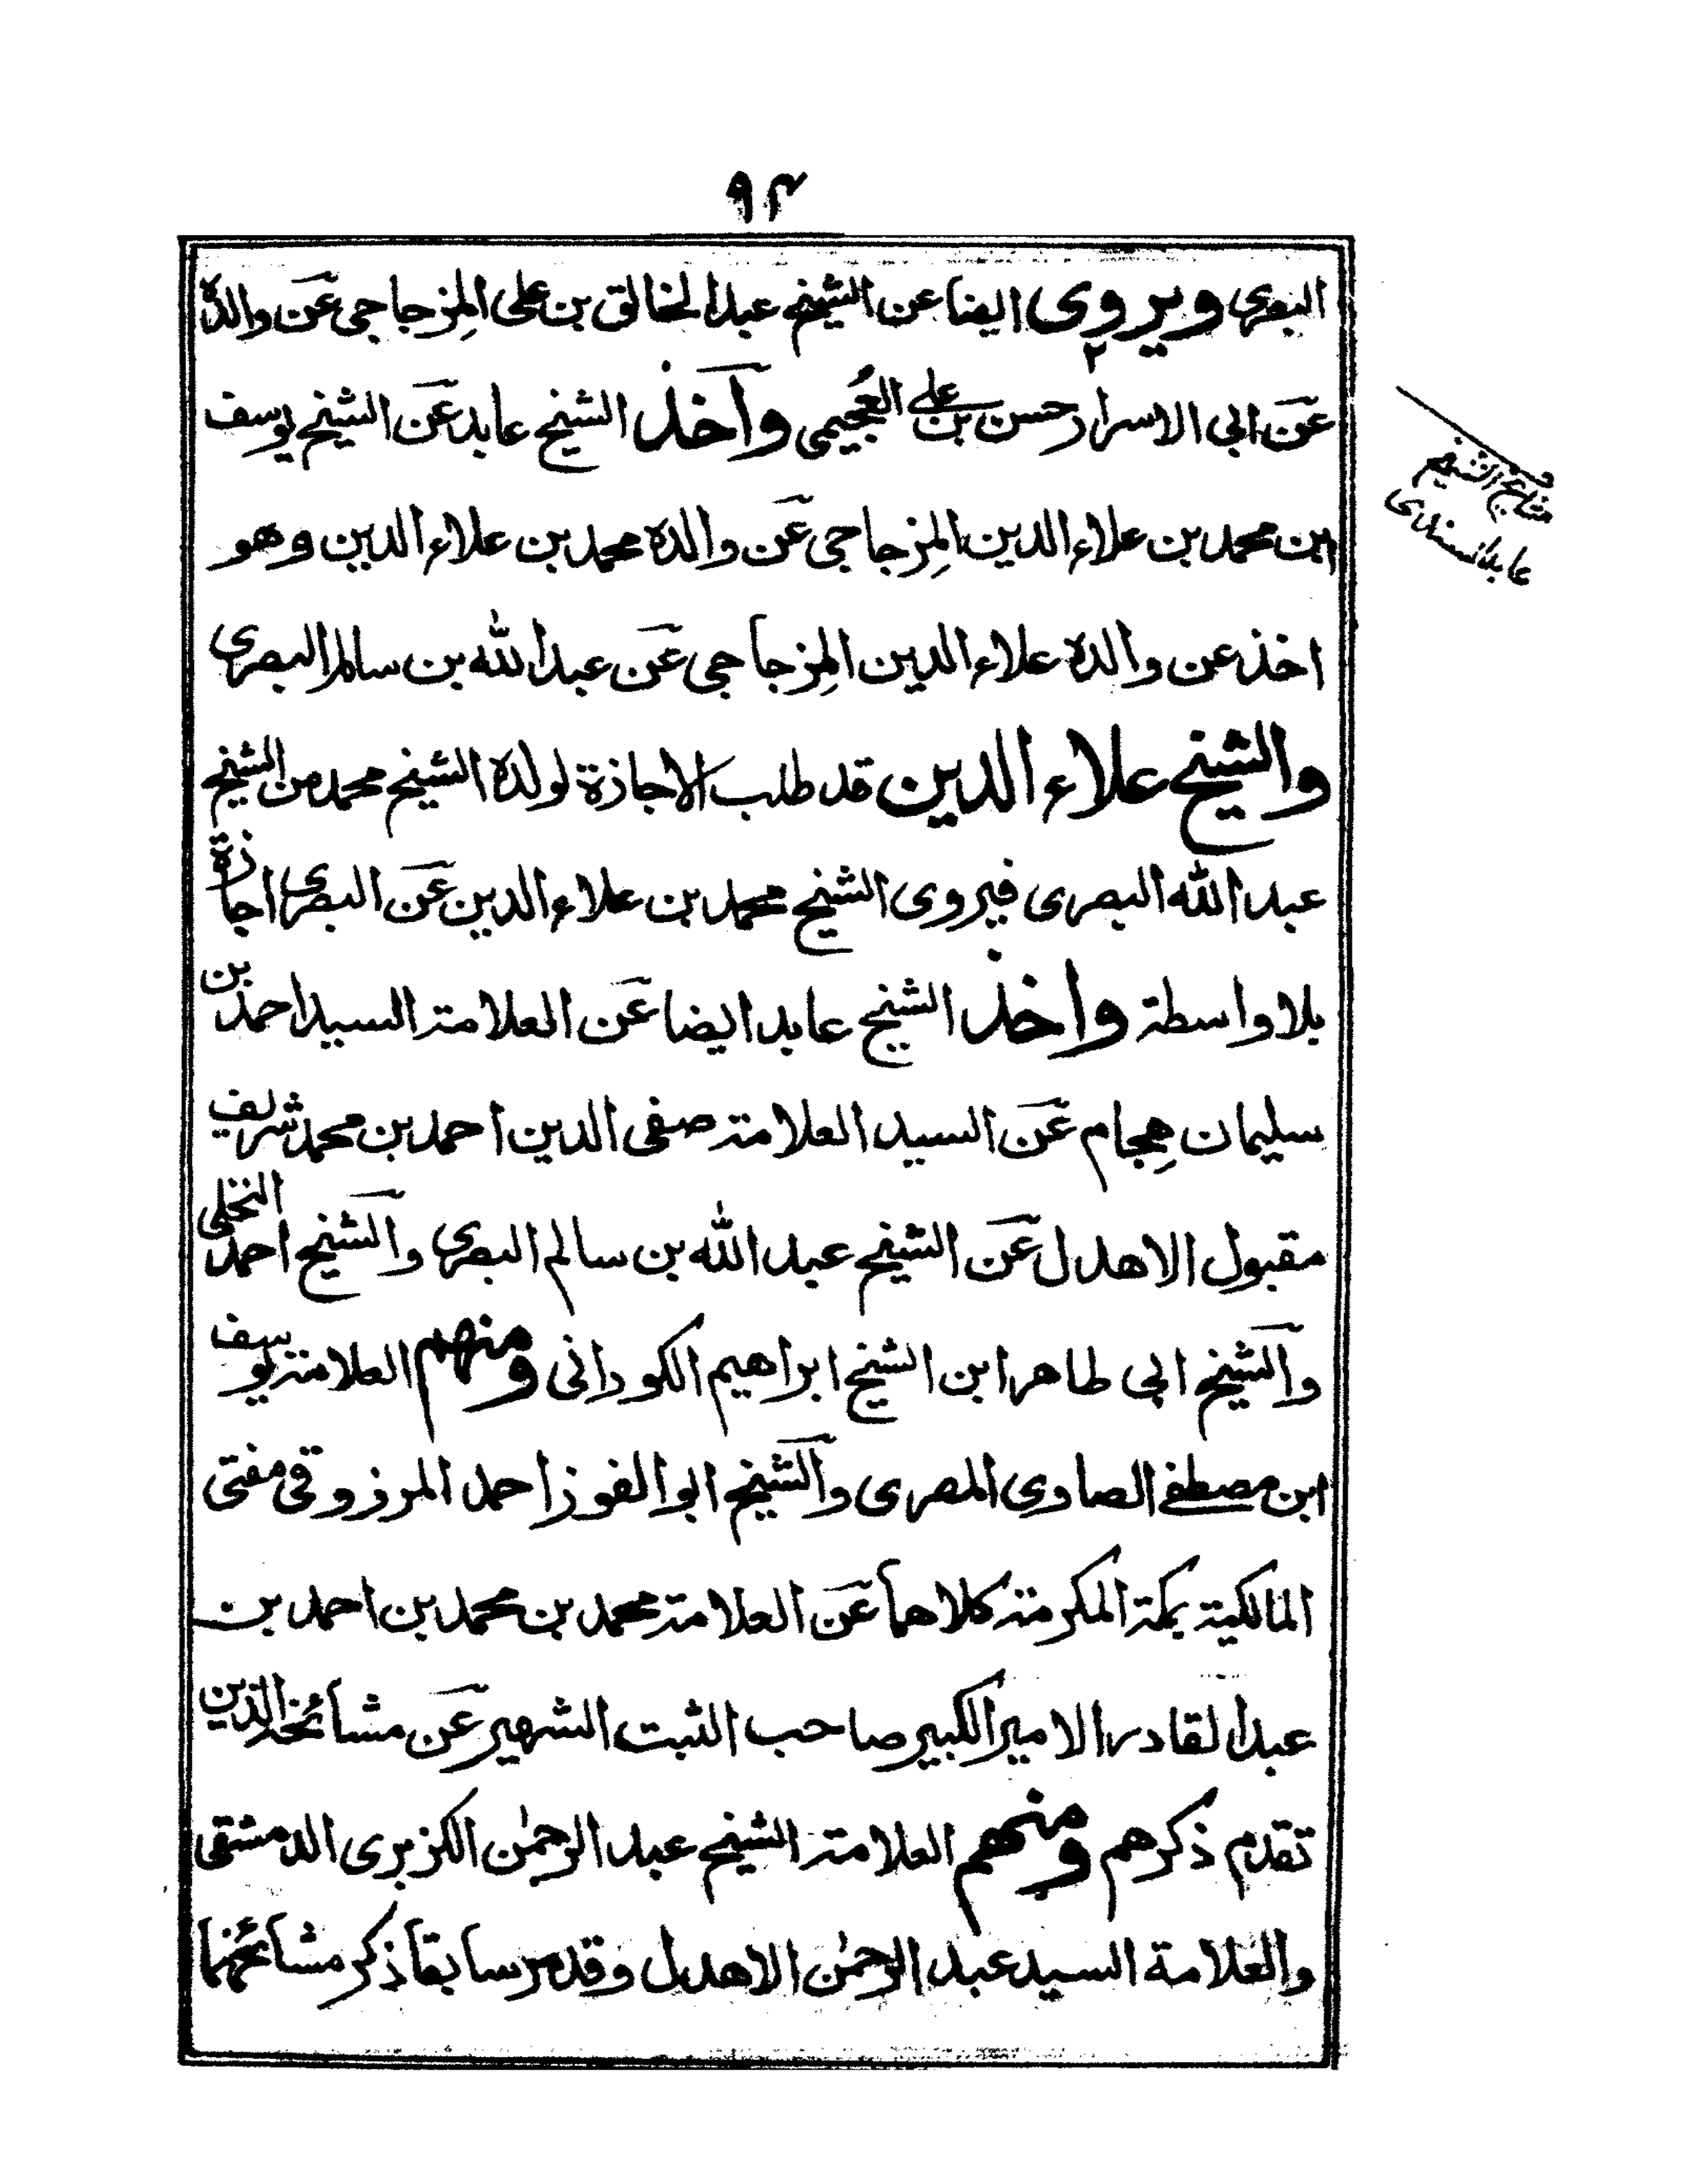 ٩٣
البصرى ويروى ايضا عن الشيخ عبد الخالق بن على المِزجاجى عَن والده
عَن ابى الاسرار حسن بن على العُجيمى وآخذ الشيخ عابد عَن الشيخ يوسف
ابن محمد بن علاء الدين المِزجاجى عَن والده محمد بن علاء الدين وهو
اخذ عن والده علاء الدين المِزجاجى عَن عبد الله بن سالم البصرى
والشيخ علاء الدين قد طلب الاجازة لولده الشيخ محمد من الشيخ
عبد الله البصرى فيروى الشيخ محمد بن علاء الدين عَن البصرى اجازة
بلا واسطة واخذ الشيخ عابد ايضا عَن العلامة السيد احمد بن
سليمان هِجام عَن السيد العلامة صفى الدين احمد بن محمد شريف
مقبول الاهدل عَن الشيخ عبد الله بن سالم البصرى والشيخ احمد النخلى
والشيخ ابى طاهر ابن الشيخ ابراهيم الكورانى ومنهم العلامة يوسف
ابن مصطفے الصاوى المصرى والشيخ ابو الفوز احمد المرزوقى مفتى
المالكية بمكة المكرمة كلاهما عَن العلامة محمد بن محمد بن احمد بن
عبد القادر الامير الكبير صاحب الثبت الشهير عَن مشائخه الذين
تقدم ذكرهم ومنهم العلامة الشيخ عبد الرحمٰن الكزبرى الدمشقى
والعلامة السيد عبد الرحمٰن الاهدل وقد مر سابقا ذكر مشائخهما
مشايخ الشيخ
عابد السندى